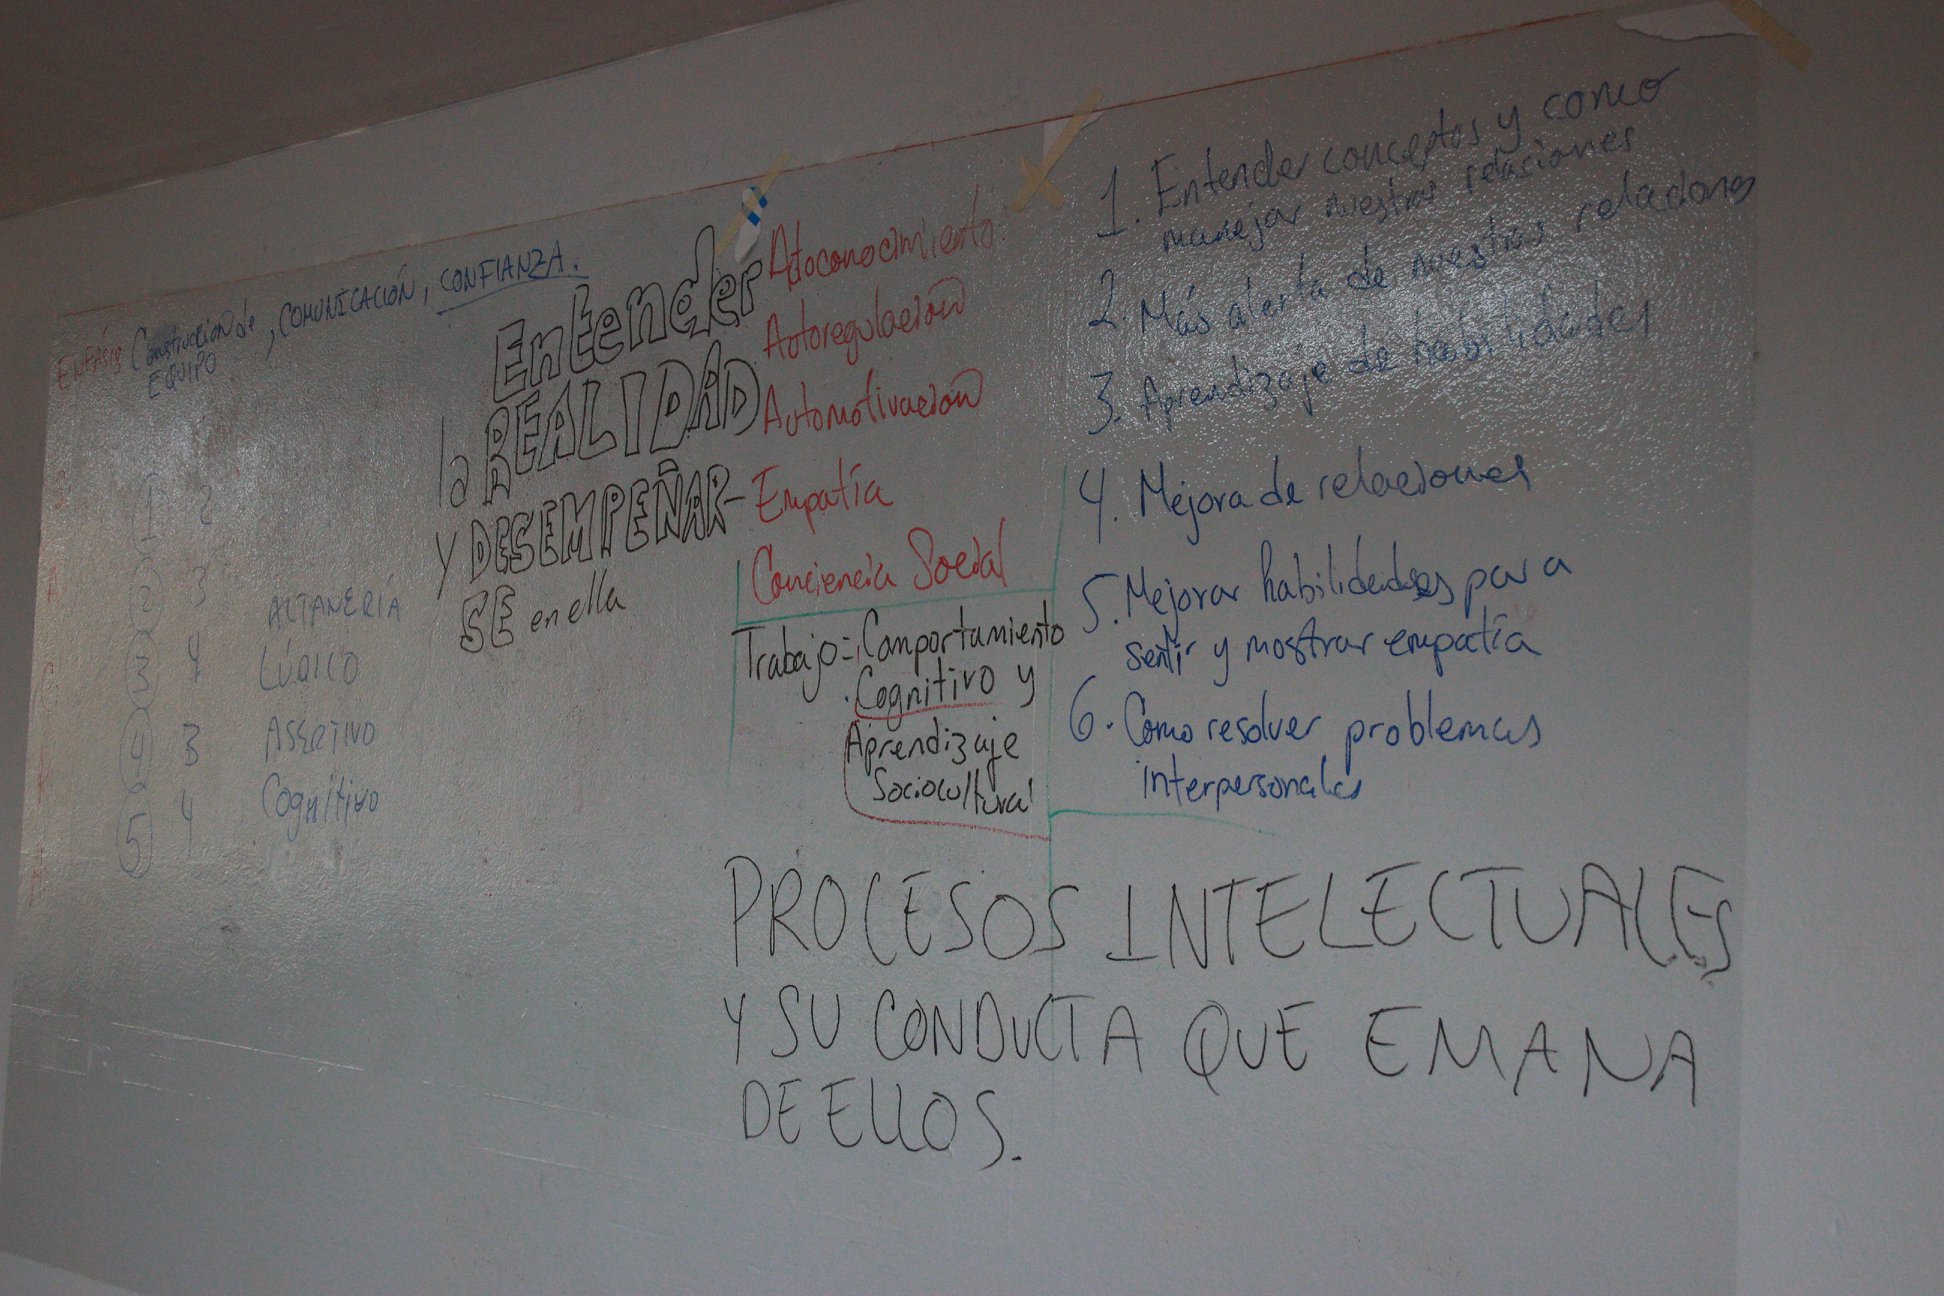 ENFASIS Construccion de EQUIPO, COMUNICACIÓN, CONFIANZA.
1 2
2 3
3 4
4 3
5 4
ALTANERÍA
LÚDICO
ASERTIVO
Cognitivo
Entender
la REALIDAD
Y DESEMPEÑAR-
SE en ella
Autoconocimiento:
Autoregulación
Automotivación
Empatía
Conciencia Social
Trabajo=, Comportamiento
. Cognitivo y
Aprendizaje
Sociocultural
1. Entender conceptos y como
manejar nuestras relaciones
2. Más alerta de nuestras relaciones
3. Aprendizaje de habilidades
4. Mejora de relaciones
5. Mejorar habilidades para
sentir y mostrar empatía
6. Como resolver problemas
interpersonales
PROCESOS INTELECTUALES
Y SU CONDUCTA QUE EMANA
DE ELLOS.